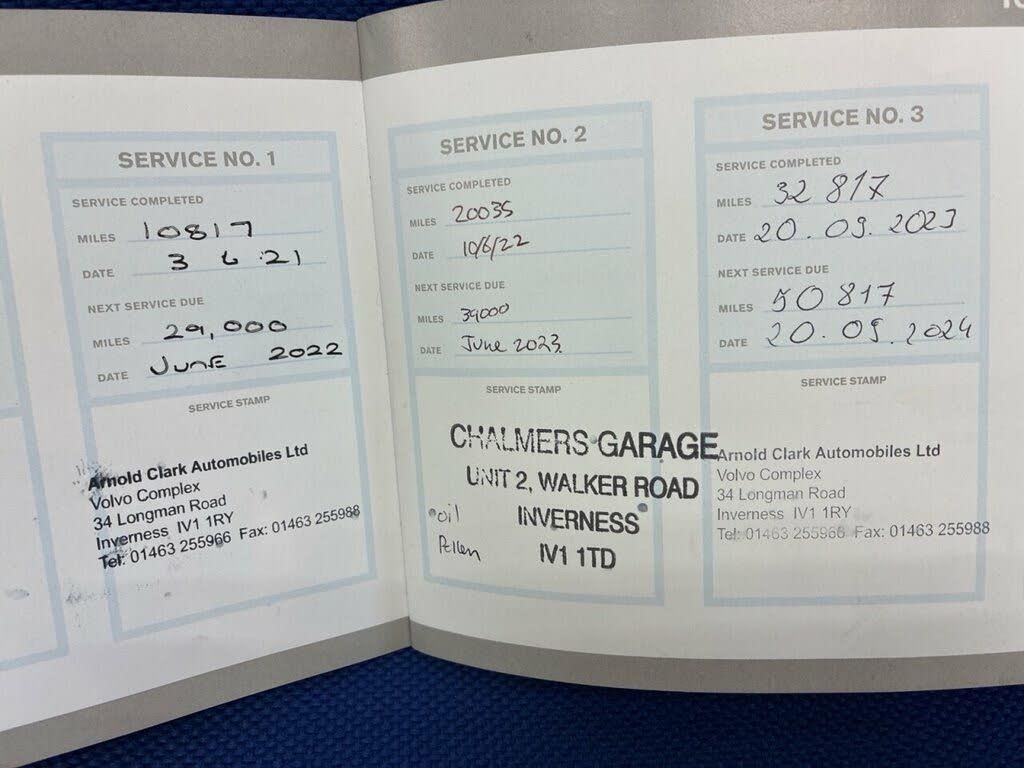 SERVICE NO. 1
SERVICE COMPLETED
MILES 10817
DATE 3 6 21
NEXT SERVICE DUE
MILES 29,000
DATE JUNE 2022
SERVICE STAMP
Arnold Clark Automobiles Ltd
Volvo Complex
34 Longman Road
Inverness IV1 1RY
Tel: 01463 255966 Fax: 01463 255988
SERVICE NO. 2
SERVICE COMPLETED
MILES 20035
DATE 10/6/22
NEXT SERVICE DUE
MILES 39000
DATE June 2023
SERVICE STAMP
CHALMERS GARAGE
UNIT 2, WALKER ROAD
INVERNESS
IV1 1TD
oil
Pollen
SERVICE NO. 3
SERVICE COMPLETED
MILES 32 817
DATE 20.09.2023
NEXT SERVICE DUE
MILES 50 817
DATE 20.09.2024
SERVICE STAMP
Arnold Clark Automobiles Ltd
Volvo Complex
34 Longman Road
Inverness IV1 1RY
Tel: 01463 255966 Fax: 01463 255988